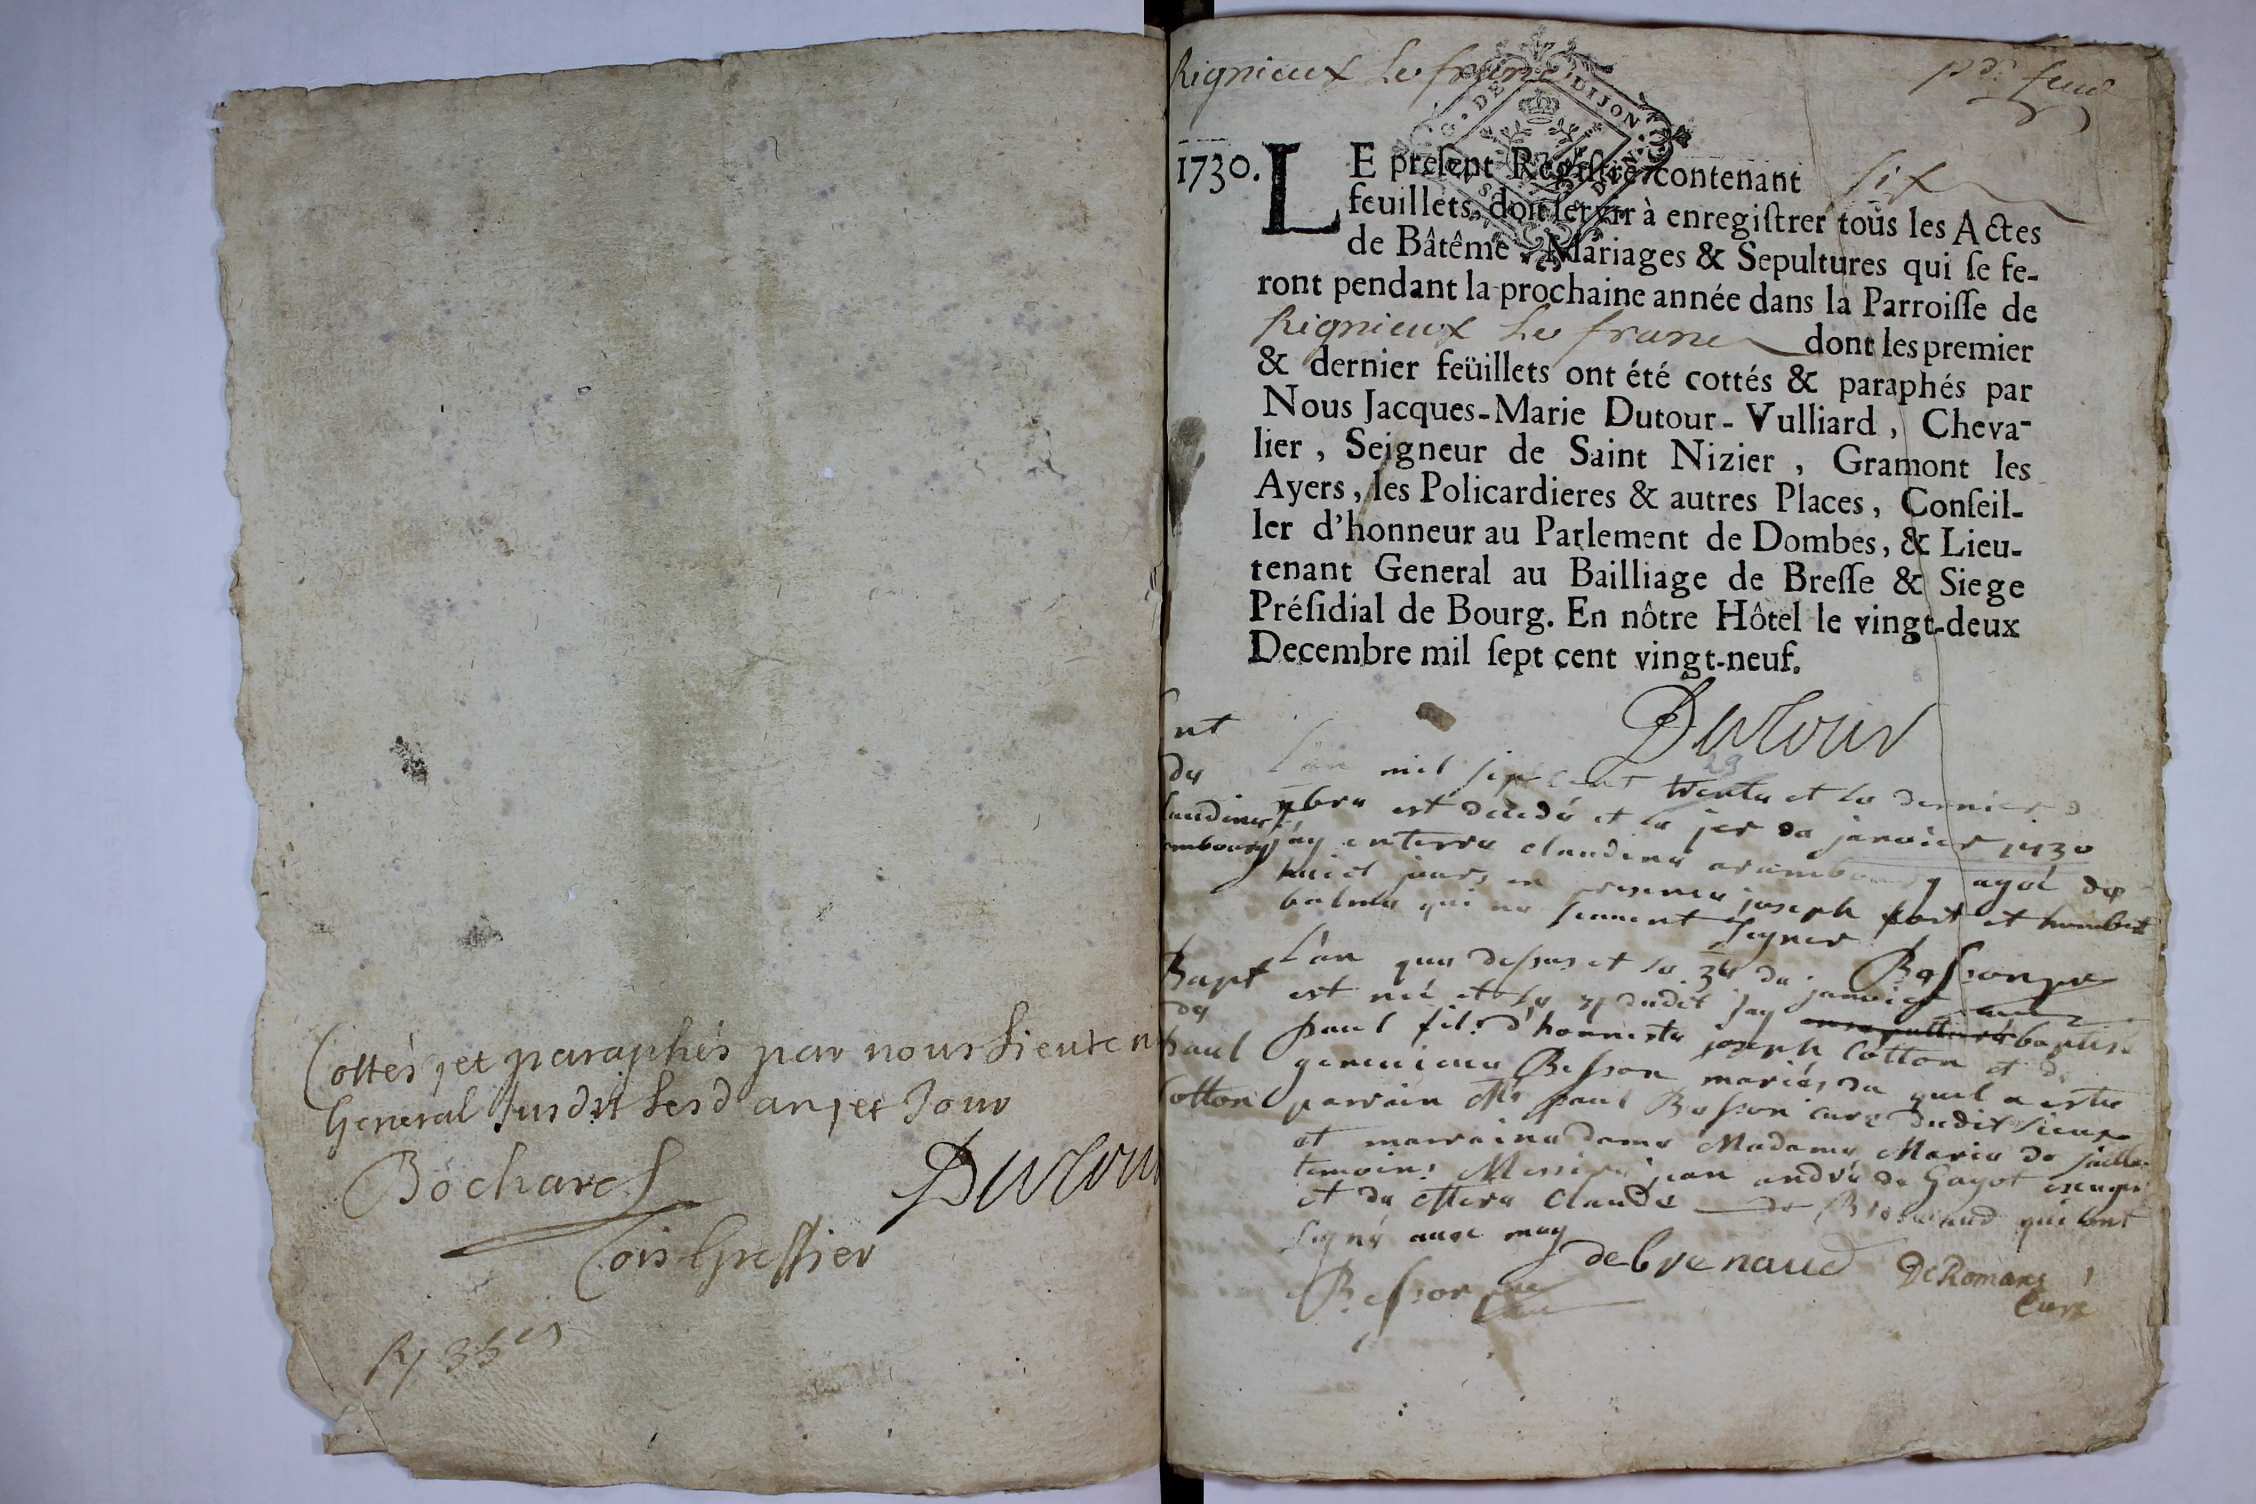 Cottés et paraphés par nous Lieuten
General susdit lesd an et Jour
Bochard Dutour
Cois Greffier
Rignieux Le franc
pr. feuil
DE DIJON
1730.
LE preſent Regiſtre contenant six
feuillets, doit ſervir à enregiſtrer tous les Actes
de Bâtême, Mariages & Sepultures qui ſe fe-
ront pendant la prochaine année dans la Parroiſſe de
Rignieux Le franc dont les premier
& dernier feüillets ont été cottés & paraphés par
Nous Jacques-Marie Dutour-Vulliard, Cheva-
lier, Seigneur de Saint Nizier, Gramont les
Ayers, les Policardieres & autres Places, Conſeil-
ler d'honneur au Parlement de Dombes, & Lieu-
tenant General au Bailliage de Breſſe & Siege
Préſidial de Bourg. En nôtre Hôtel le vingt-deux
Decembre mil ſept cent vingt-neuf.
Dutour
L'an mil sept cent trente et le dernier
est decedé et le jer de janvier 1730
jay enterré claudine arambourg agé de
huict jours en presence joseph fort et humbert
balme qui ne scavent signer
Besson
Bapt
de
paul
Cotton
L'an que dessus et le 3e de janvier
est né et le dudit jay baptisé
paul fils d'honneste joseph Cotton et de
Besson mariés du quel a esté
parrain Mre paul Besson curé dudit lieu
et marraine dame Madame Marie de
temoins Messire jean andré de Gayot
et de Claude de qui ont
signé avec moy
debrenaud De Romans
Curé
Besson